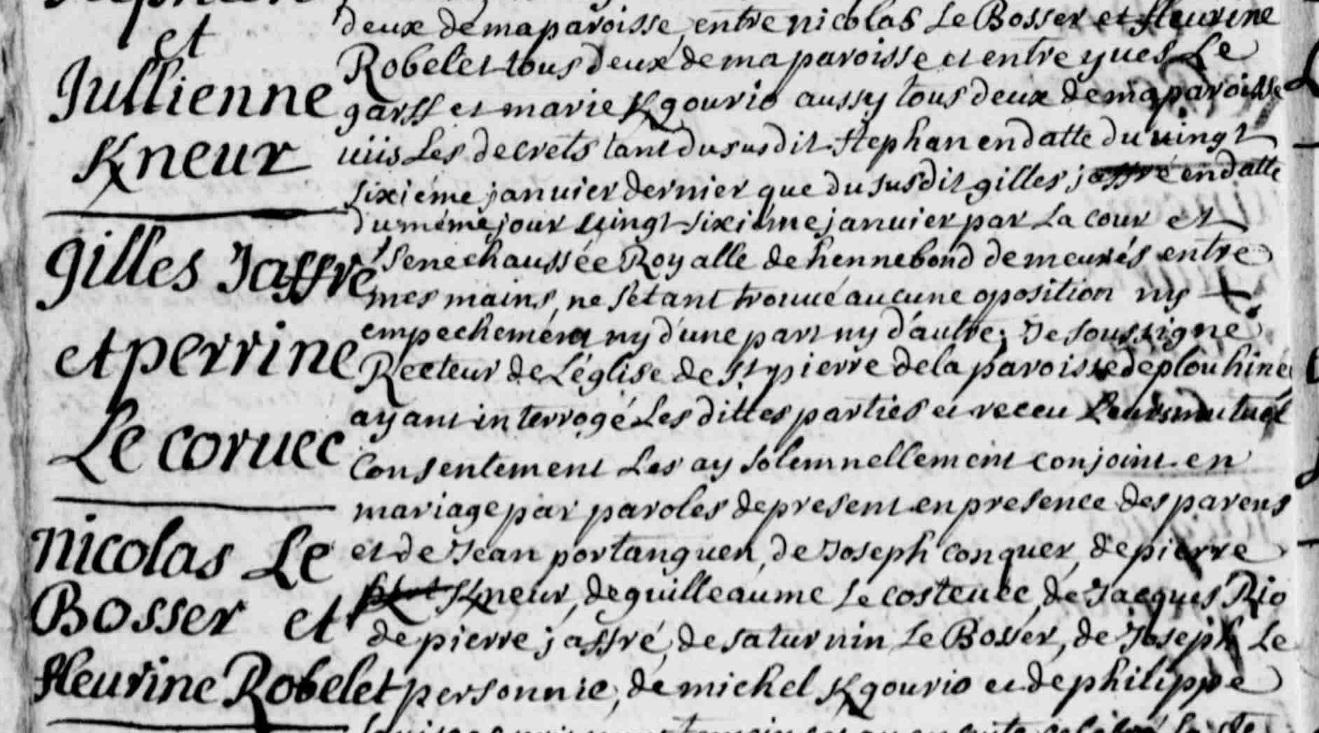 et
Jullienne
Kneur
gilles Jaffré
et perrine
Le coruec
nicolas Le
Bosser et
fleurine Robelet
deux de ma paroisse, entre nicolas Le Bosser et fleurine
Robelet tous deux de ma paroisse et entre yues Le
garff et marie Kgourio aussy tous deux de ma paroisse
uüs Les decrets tant du susdit Stephan en datte du uingt
sixiéme januier dernier que du susdit gilles jaffré en datte
du méme jour uingt sixiéme januier par La cour et
Senechaussée Royalle de hennebond demeurés entre
mes mains, ne sétant trouué aucune oposition ny
empechement ny d'une part ny d'autre; Je soussigné
Recteur de L'église de St pierre de la paroisse de plouhinec
ayant interrogé Les dittes parties et receu Leurs mutuel
Consentement Les ay solemnellement conjoint en
mariage par paroles de present en presence des parens
et de Jean portanguen, de Joseph conquer, de pierre
Kneur, de guilleaume Le costeuec, de Jacques Rio
de pierre jaffré, de saturnin Le Bosser, de Joseph Le
personnic, de michel Kgourio et de philippe